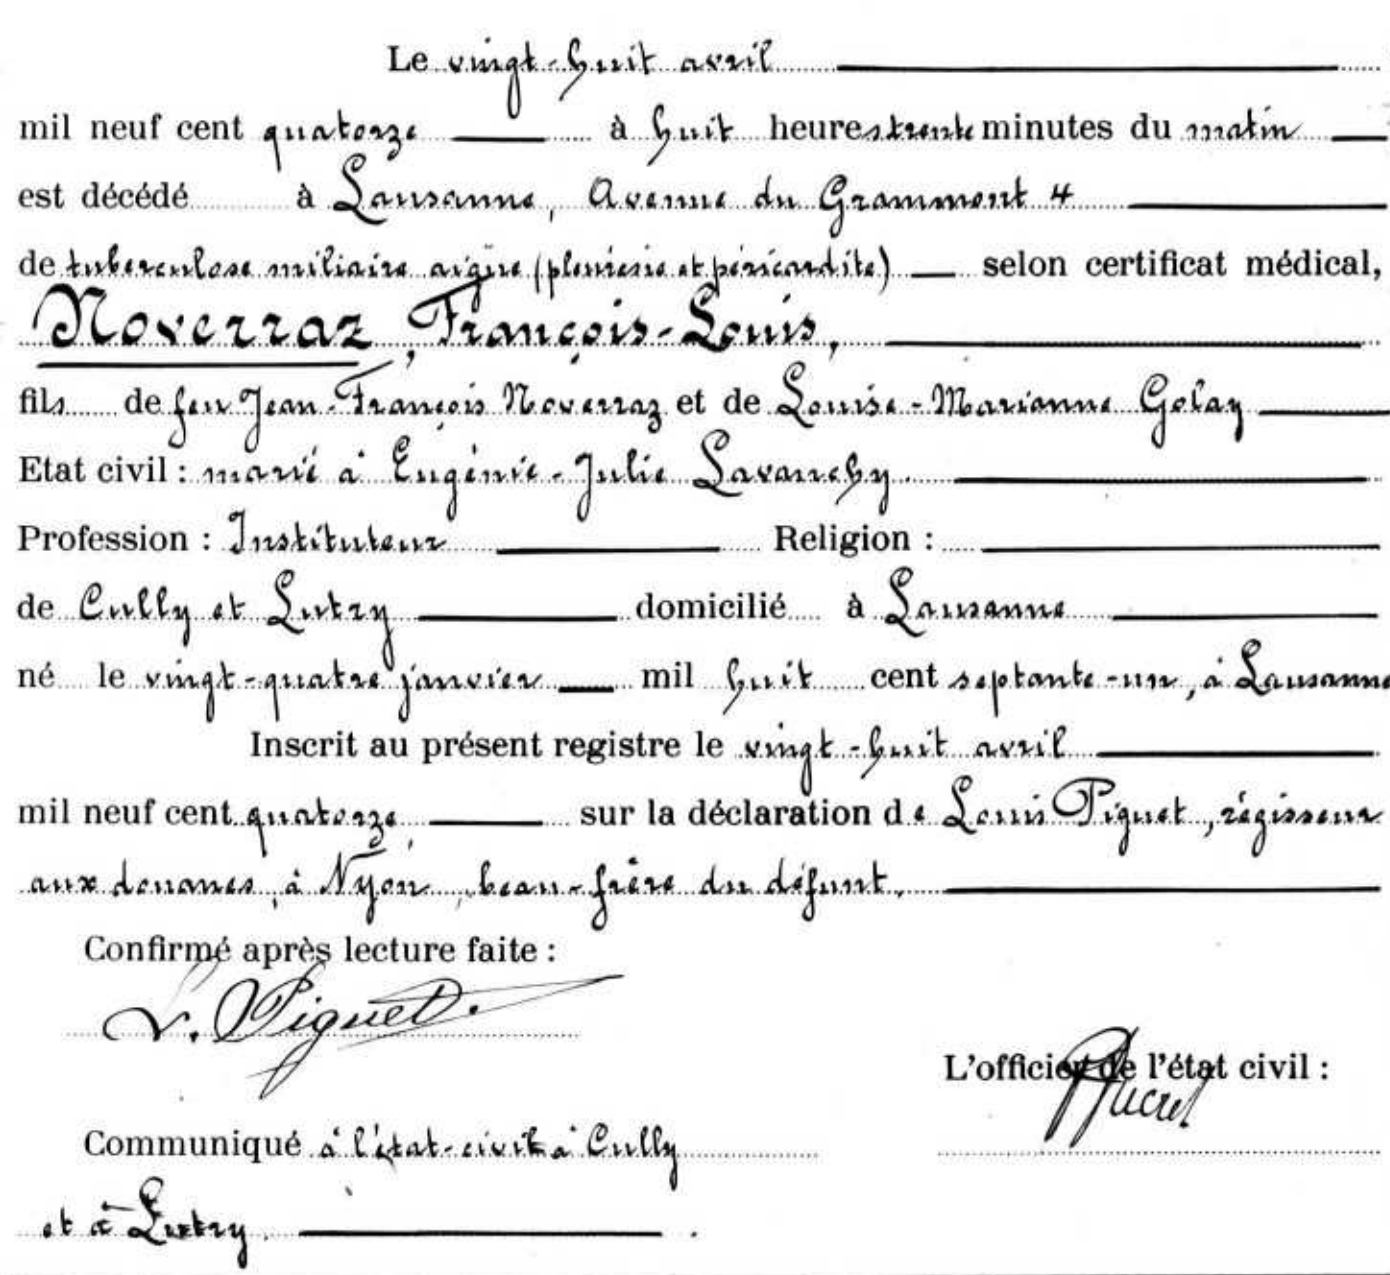 Le vingt-huit avril
mil neuf cent quatorze à huit heures trente minutes du matin
est décédé à Lausanne, Avenue du Grammont 4
de tuberculose miliaire aigüe (pleurésie et péricardite) selon certificat médical,
Noverraz, François-Louis,
fils de feu Jean-François Noverraz et de Louise-Marianne Golay
Etat civil : marié à Eugénie-Julie Lavanchy
Profession : Instituteur Religion :
de Cully et Lutry domicilié à Lausanne
né le vingt-quatre janvier mil huit cent septante-un, à Lausanne
Inscrit au présent registre le vingt-huit avril
mil neuf cent quatorze, sur la déclaration de Louis Piguet, régisseur
aux douanes, à Nyon, beau-frère du défunt.
Confirmé après lecture faite :
L. Piguet.
L'officier de l'état civil :
Communiqué à l'état-civil à Cully
et à Lutry.